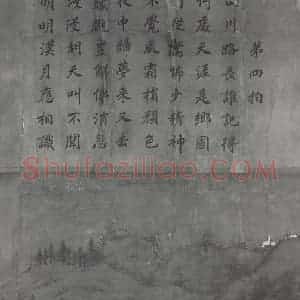 第四拍
山川路長誰記得
何處天涯是鄉國
從驚怖少精神
不覺風霜損顏色
夜中歸夢來又去
朧豈解傳消息
漫漫胡天叫不聞
明明漢月應相識
Shufaziliao.COM